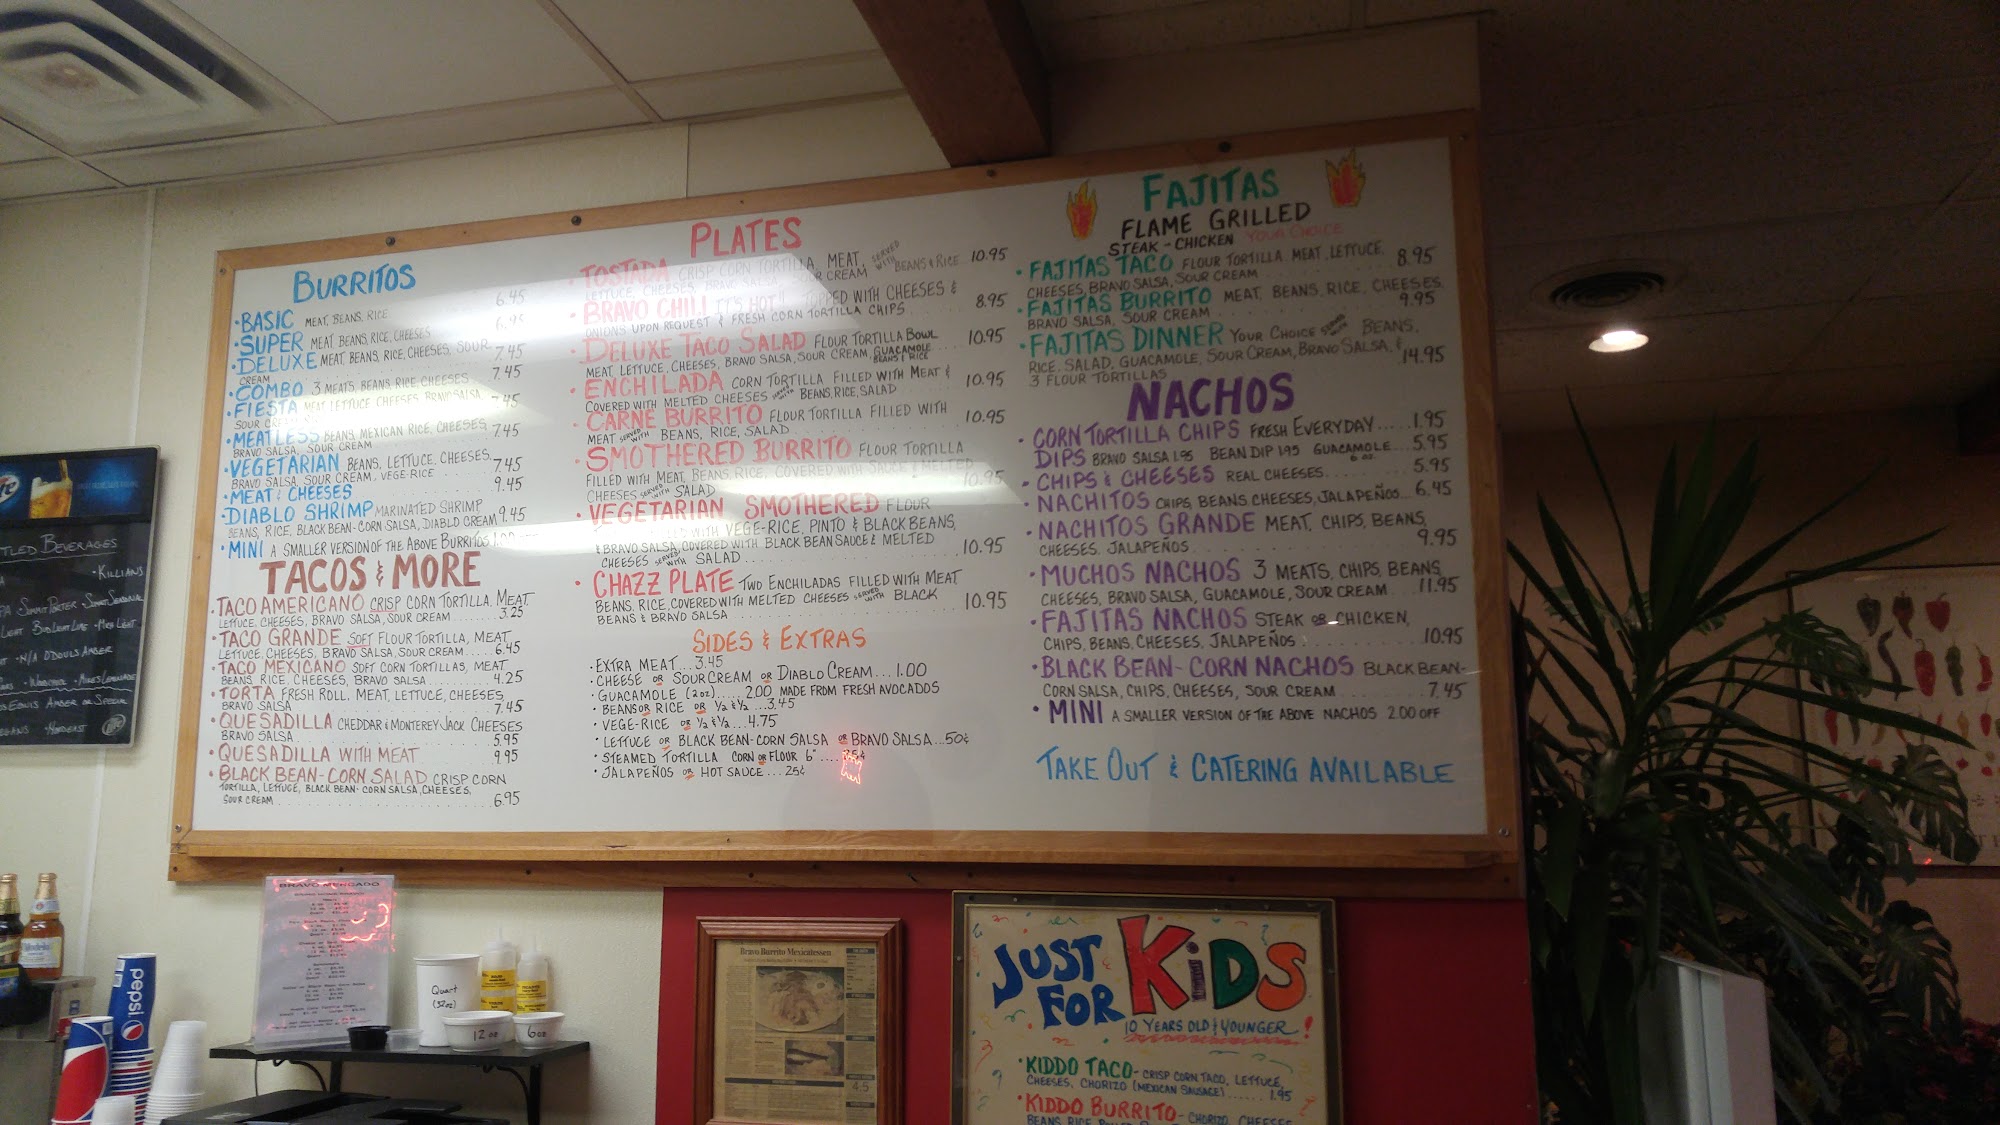 BURRITOS
• BASIC MEAT, BEANS, RICE 6.45
• SUPER MEAT BEANS, RICE, CHEESES 6.95
• DELUXE MEAT, BEANS, RICE, CHEESES, SOUR CREAM 7.45
• COMBO 3 MEATS, BEANS, RICE, CHEESES 7.45
• FIESTA MEAT LETTUCE CHEESES, BRAVO SALSA, 7.45
SOUR CREAM
• MEATLESS BEANS, MEXICAN RICE, CHEESES, 7.45
BRAVO SALSA, SOUR CREAM
• VEGETARIAN BEANS, LETTUCE, CHEESES, 7.45
BRAVO SALSA, SOUR CREAM, VEGE-RICE
• MEAT & CHEESES 9.45
• DIABLO SHRIMP MARINATED SHRIMP
BEANS, RICE, BLACK BEAN-CORN SALSA, DIABLO CREAM 9.45
• MINI A SMALLER VERSION OF THE ABOVE BURRITOS
TACOS & MORE
• TACO AMERICANO CRISP CORN TORTILLA, MEAT,
LETTUCE, CHEESES, BRAVO SALSA, SOUR CREAM ..... 3.25
• TACO GRANDE SOFT FLOUR TORTILLA, MEAT,
LETTUCE, CHEESES, BRAVO SALSA, SOUR CREAM .... 6.45
• TACO MEXICANO SOFT CORN TORTILLAS, MEAT
BEANS, RICE, CHEESES, BRAVO SALSA ........ 4.25
• TORTA FRESH ROLL, MEAT, LETTUCE, CHEESES,
BRAVO SALSA ........ 7.45
• QUESADILLA CHEDDAR & MONTEREY JACK CHEESES
BRAVO SALSA ........ 5.95
• QUESADILLA WITH MEAT 9.95
• BLACK BEAN-CORN SALAD CRISP CORN
TORTILLA, LETTUCE, BLACK BEAN-CORN SALSA, CHEESES,
SOUR CREAM ........ 6.95
PLATES
• TOSTADA CRISP CORN TORTILLA, MEAT, SERVED WITH BEANS & RICE 10.95
LETTUCE, CHEESES, BRAVO SALSA, SOUR CREAM
• BRAVO CHILI IT'S HOT!! TOPPED WITH CHEESES &
ONIONS UPON REQUEST & FRESH CORN TORTILLA CHIPS ..... 8.95
• DELUXE TACO SALAD FLOUR TORTILLA BOWL 10.95
MEAT, LETTUCE, CHEESES, BRAVO SALSA, SOUR CREAM, GUACAMOLE BEANS & RICE
• ENCHILADA CORN TORTILLA FILLED WITH MEAT &
COVERED WITH MELTED CHEESES SERVED WITH BEANS, RICE, SALAD 10.95
• CARNE BURRITO FLOUR TORTILLA FILLED WITH
MEAT SERVED WITH BEANS, RICE, SALAD ....... 10.95
• SMOTHERED BURRITO FLOUR TORTILLA
FILLED WITH MEAT, BEANS, RICE, COVERED WITH SAUCE & MELTED
CHEESES SERVED WITH SALAD 10.95
• VEGETARIAN SMOTHERED FLOUR
WITH VEGE-RICE, PINTO & BLACK BEANS,
& BRAVO SALSA, COVERED WITH BLACK BEAN SAUCE & MELTED
CHEESES SERVED WITH SALAD ........ 10.95
• CHAZZ PLATE TWO ENCHILADAS FILLED WITH MEAT
BEANS, RICE, COVERED WITH MELTED CHEESES SERVED WITH BLACK
BEANS & BRAVO SALSA ........ 10.95
SIDES & EXTRAS
• EXTRA MEAT ... 3.45
• CHEESE OR SOUR CREAM OR DIABLO CREAM ... 1.00
• GUACAMOLE (2oz) ..... 2.00 MADE FROM FRESH AVOCADOS
• BEANS OR RICE OR ½ & ½ ... 3.45
• VEGE-RICE OR ½ & ½ ... 4.75
• LETTUCE OR BLACK BEAN-CORN SALSA OR BRAVO SALSA ... 50¢
• STEAMED TORTILLA CORN OR FLOUR 6" ....
• JALAPEÑOS OR HOT SAUCE ... 25¢
FAJITAS
FLAME GRILLED
STEAK - CHICKEN YOUR CHOICE
• FAJITAS TACO FLOUR TORTILLA, MEAT, LETTUCE, 8.95
CHEESES, BRAVO SALSA, SOUR CREAM
• FAJITAS BURRITO MEAT, BEANS, RICE, CHEESES,
BRAVO SALSA, SOUR CREAM ........ 9.95
• FAJITAS DINNER YOUR CHOICE SERVED WITH BEANS,
RICE, SALAD, GUACAMOLE, SOUR CREAM, BRAVO SALSA, & 14.95
3 FLOUR TORTILLAS
NACHOS
• CORN TORTILLA CHIPS FRESH EVERYDAY ..... 1.95
DIPS BRAVO SALSA 1.95 BEAN DIP 1.95 GUACAMOLE 6 OZ. ... 5.95
• CHIPS & CHEESES REAL CHEESES ........ 5.95
• NACHITOS CHIPS, BEANS, CHEESES, JALAPEÑOS ... 6.45
• NACHITOS GRANDE MEAT, CHIPS, BEANS,
CHEESES, JALAPEÑOS ........ 9.95
• MUCHOS NACHOS 3 MEATS, CHIPS, BEANS,
CHEESES, BRAVO SALSA, GUACAMOLE, SOUR CREAM .... 11.95
• FAJITAS NACHOS STEAK OR CHICKEN,
CHIPS, BEANS, CHEESES, JALAPEÑOS ........ 10.95
• BLACK BEAN-CORN NACHOS BLACK BEAN-
CORN SALSA, CHIPS, CHEESES, SOUR CREAM ........ 7.45
• MINI A SMALLER VERSION OF THE ABOVE NACHOS 2.00 OFF
TAKE OUT & CATERING AVAILABLE
BEVERAGES
• KILLIANS
BRAVO MERCADO
pepsi
Quart
(32oz)
12 oz
6 oz
Bravo Burrito Mexicatessen
JUST FOR KiDS
10 YEARS OLD & YOUNGER!
• KIDDO TACO - CRISP CORN TACO, LETTUCE,
CHEESES, CHORIZO (MEXICAN SAUSAGE) ...... 1.95
• KIDDO BURRITO - CHORIZO, CHEESES